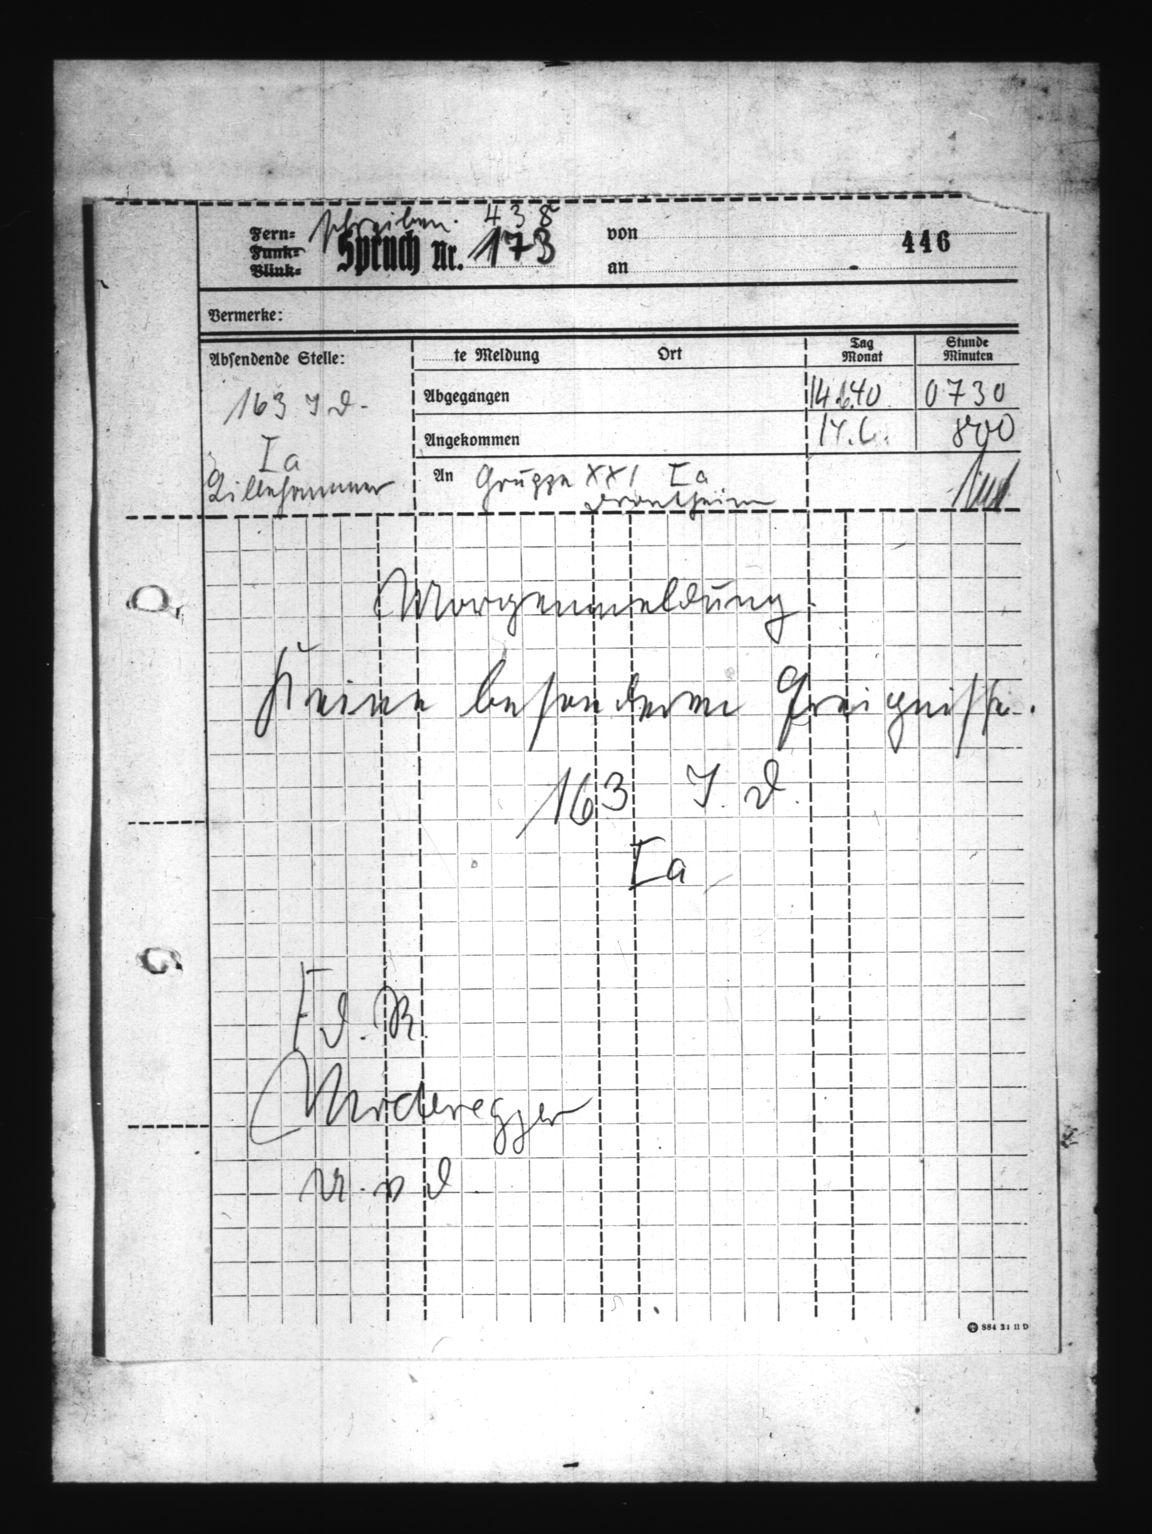 Fern= schreiben. 438
Funk= Spruch nr. 173
Blink=
von 446
an
Vermerke:
Absendende Stelle:
te Meldung Ort Tag Monat Stunde Minuten
163 I D.
Abgegangen 14.6.40 0730
Angekommen 14.6. 800
Ia
Lillehammer
An Gruppe XXI Ia
Drontheim
Morgenmeldung.
Keine besonderen Ereignisse.
163 I. D.
Ia
F d. R.
U. v D